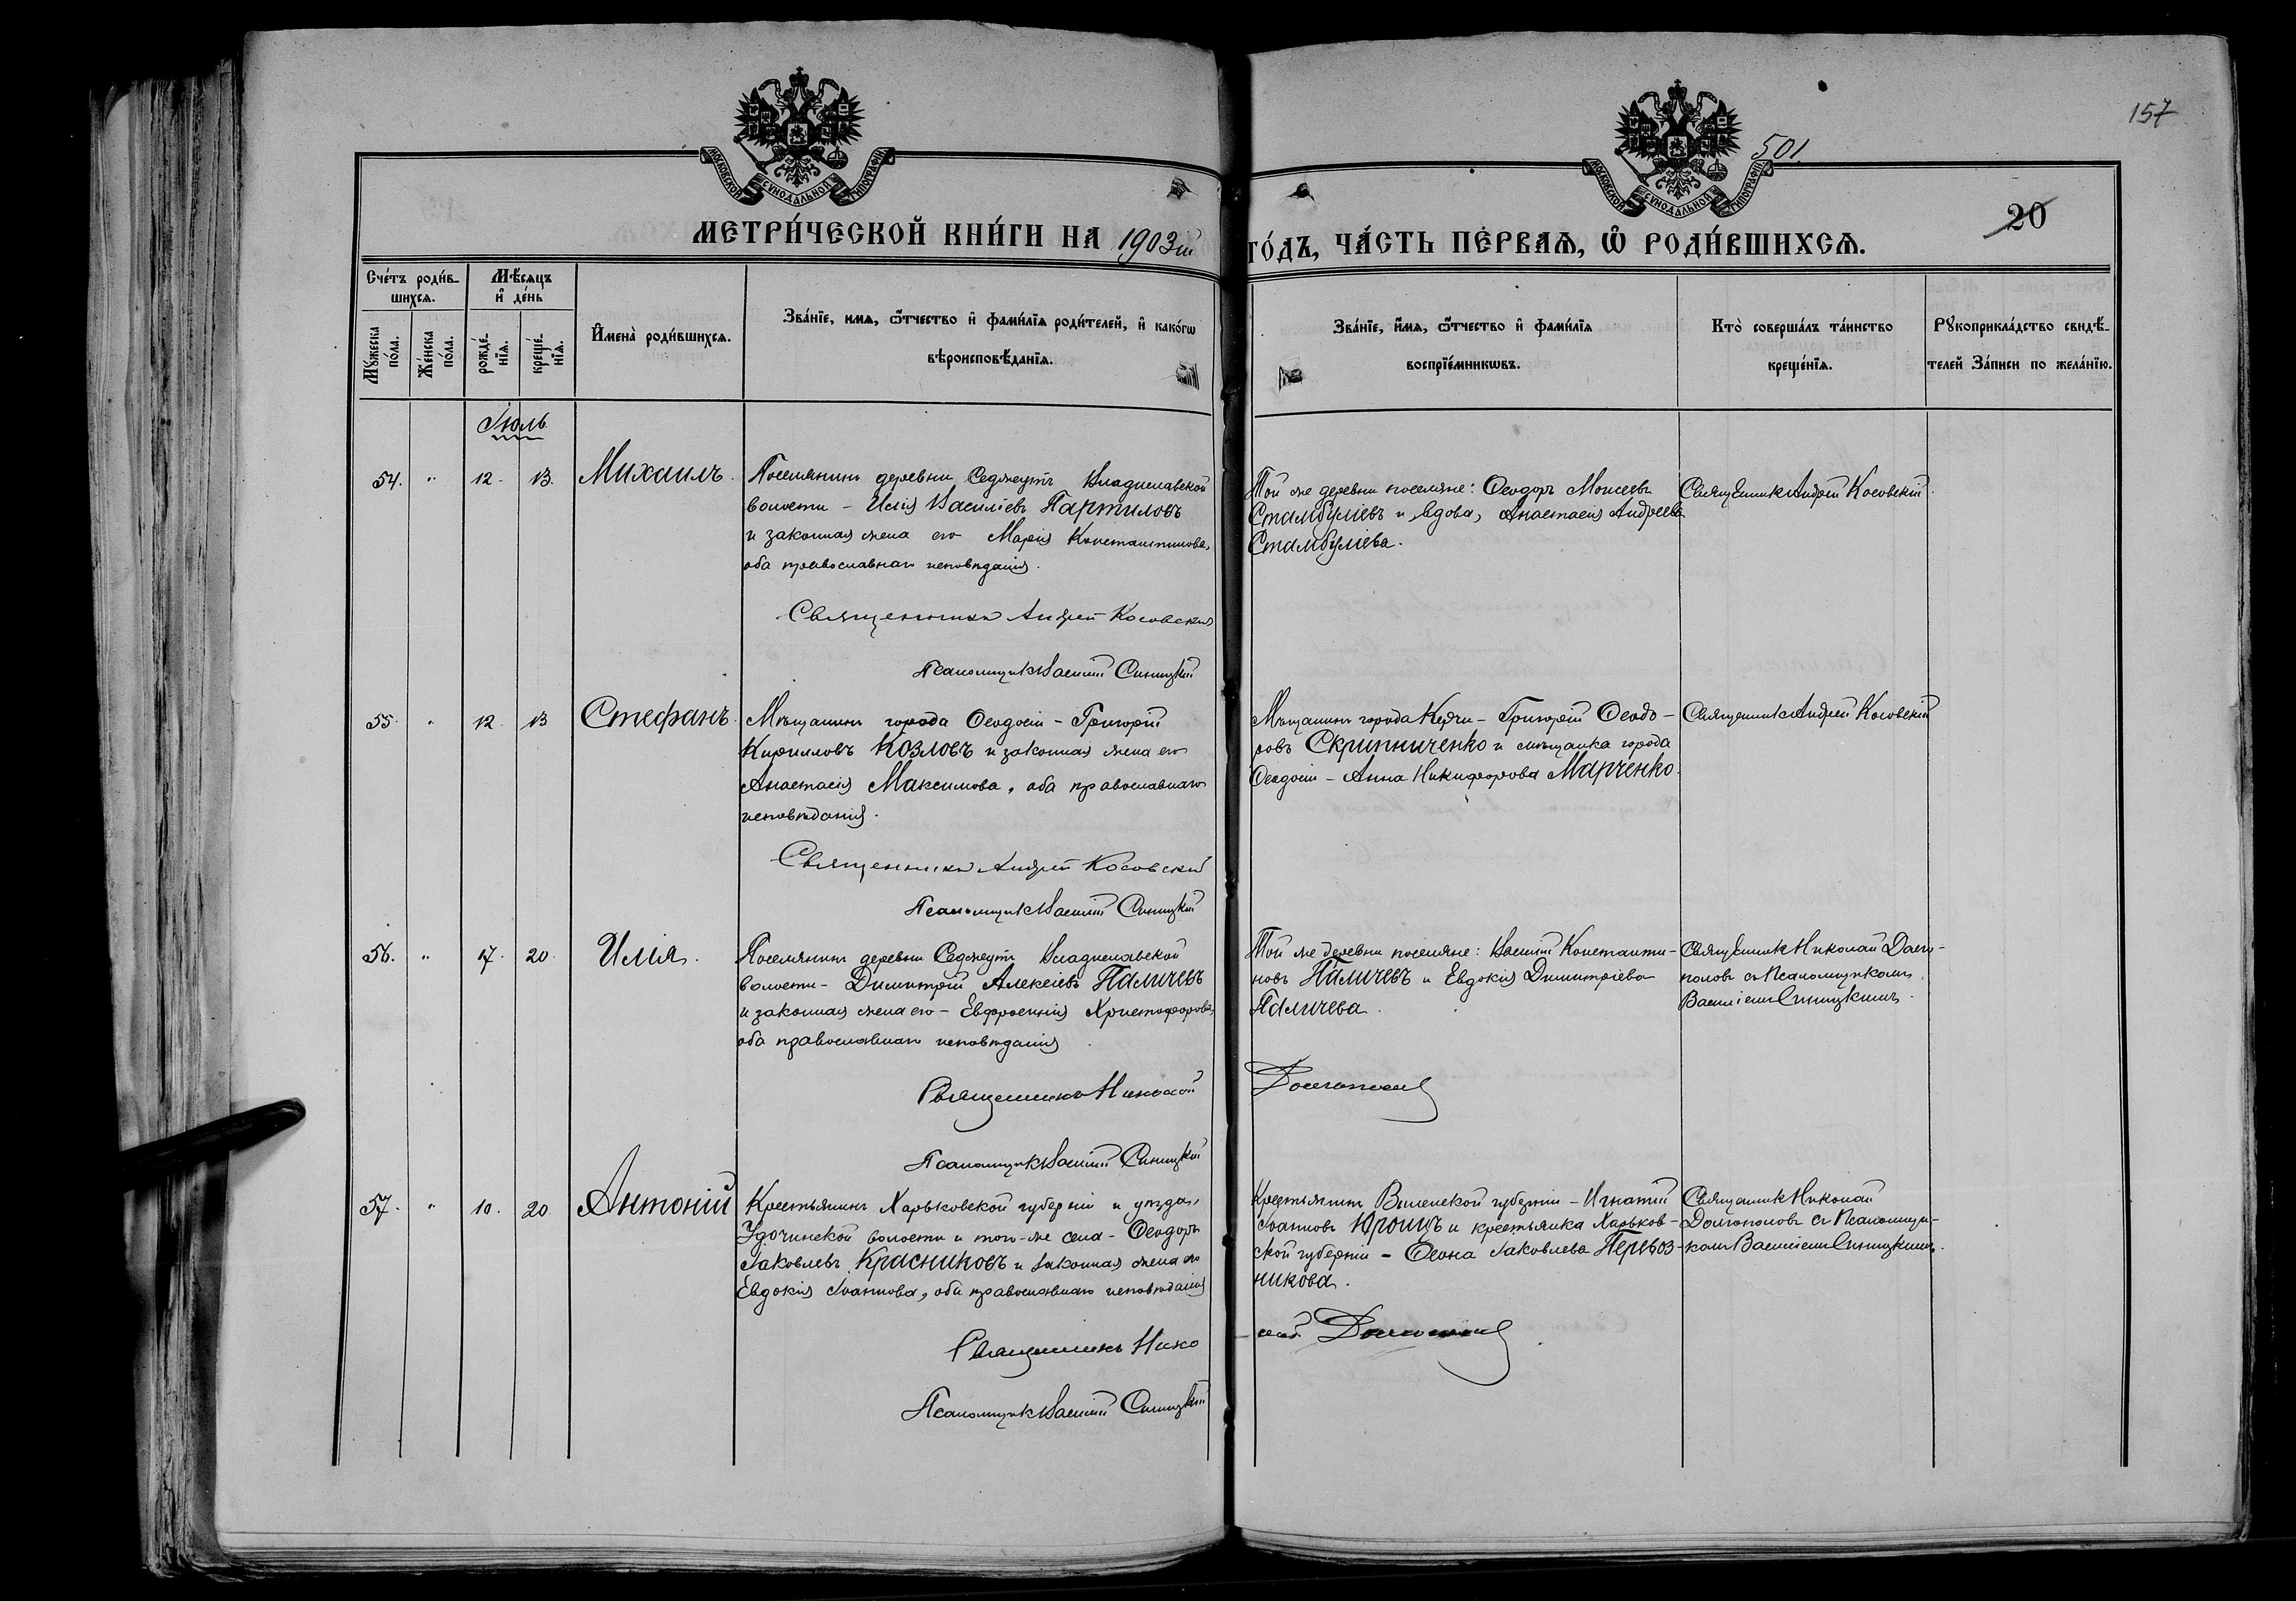 157
501
МОСКОВСКОЙ СѴНОДАЛЬНОЙ ТИПОГРАФІИ
МОСКОВСКОЙ СѴНОДАЛЬНОЙ ТИПОГРАФІИ
20
МЕТРИ́ЧЕСКОЙ КНИ́ГИ НА 1903й ГО́ДЪ, ЧА́СТЬ ПЕ́РВАѦ, Ѽ РОДИ́ВШИХСѦ.
Сче́тъ роди́в-
шихсѧ.
Мѣ́сѧцъ
и҆ де́нь
Мꙋ́жеска
по́ла.
Же́нска
по́ла.
рожде́-
нїѧ.
креще́-
нїѧ.
И҆мена̀ роди́вшихсѧ.
Зва́нїе, имѧ, ѻ҆́тчество и҆ фами́лїѧ роди́телей, и҆ како́гѡ
вѣроисповѣ́данїѧ.
Зва́нїе, и҆́мѧ, ѻ҆́тчество и҆ фами́лїѧ
воспрїе́мникѡвъ.
Кто̀ соверша́лъ та́инство
креще́нїѧ.
Рꙋкоприкла́дство свидѣ́-
телей За́писи по жела́нїю.
Іюль
54. " 12. 13. Михаилъ.
Поселянинъ деревни Седжеутъ Владиславской
волости - Илія Василіевъ Партиловъ
и законная жена его Марія Константинова,
оба православнаго исповѣданія.
Священникъ Андрей Косовскій
Псаломщикъ Василій Синицкій
Той же деревни поселяне: Ѳеодоръ Моисеевъ
Стамбуліевъ и вдова, Анастасія Андреева
Стамбуліева.
Священникъ Андрей Косовскій.
55. " 12. 13 Стефанъ.
Мѣщанинъ города Ѳеодосіи - Григорій
Кирилловъ Козловъ и законная жена его
Анастасія Максимова, оба православнаго
исповѣданія.
Священникъ Андрей Косовскій
Псаломщикъ Василій Синицкій
Мѣщанинъ города Керчи - Григорій Ѳеодо-
ровъ Скрипниченко и мѣщанка города
Ѳеодосіи - Анна Никифорова Марченко.
Священникъ Андрей Косовскій
56. " 17. 20. Илія.
Поселянинъ деревни Седжеутъ Владиславской
волости - Димитрій Алексіевъ Паличевъ
и законная жена его - Евфросинія Христофорова,
оба православнаго исповѣданія.
Священникъ Николай Долгополовъ
Псаломщикъ Василій Синицкій
Той же деревни поселяне: Василій Константи-
новъ Паличевъ и Евдокія Димитріева
Паличева.
Священникъ Николай Долго-
половъ съ Псаломщикомъ
Василіемъ Синицкимъ.
57. " 10. 20. Антоній
Крестьянинъ Харьковской губерніи и уѣзда,
волости и того-же села - Ѳеодоръ
Іаковлевъ Красниковъ и законная жена его
Евдокія Іоаннова, оба православнаго исповѣданія
Священникъ Нико
лай Долгополовъ
Псаломщикъ Василій Синицкій
Крестьянинъ Виленской губерніи - Игнатій
Іоанновъ и крестьянка Харьков-
ской губерніи - Іаковлева Перевоз-
никова.
Священникъ Николай
Долгополовъ съ Псаломщи-
комъ Василіемъ Синицкимъ.